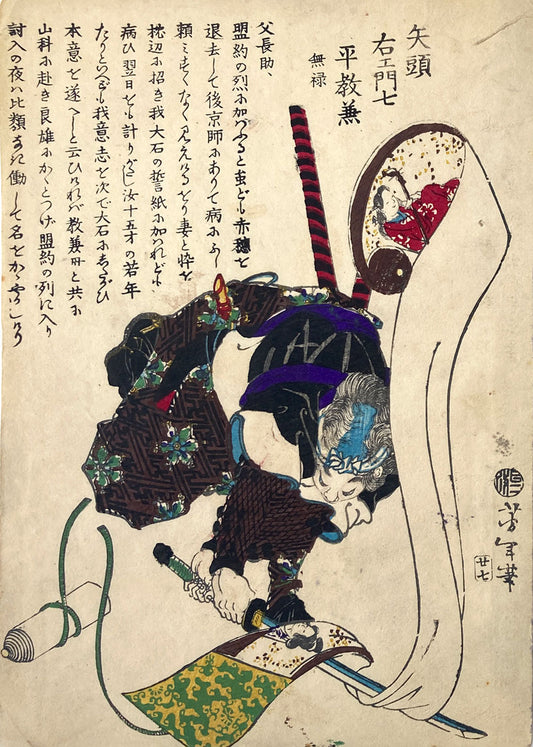 矢頭
右エ門七
平教兼
無禄
父長助、
盟約の烈に加ハると虽ども赤穂を
退去して後京師にありて病にふし
頼ミすくなく見えけるより妻と忰を
枕辺に招き我大石の誓紙に加ハれども
病ひ翌日をも計りがたし汝十五才の若年
たりといへども我意志を次で大石にしたがひ
本意を遂べしと云ひけれバ教兼母と共に
山科に赴き良雄にかくとつげ盟約の列に入り
討入の夜ハ比類なき働して名をかゞやかしけり
芳年筆
廿七